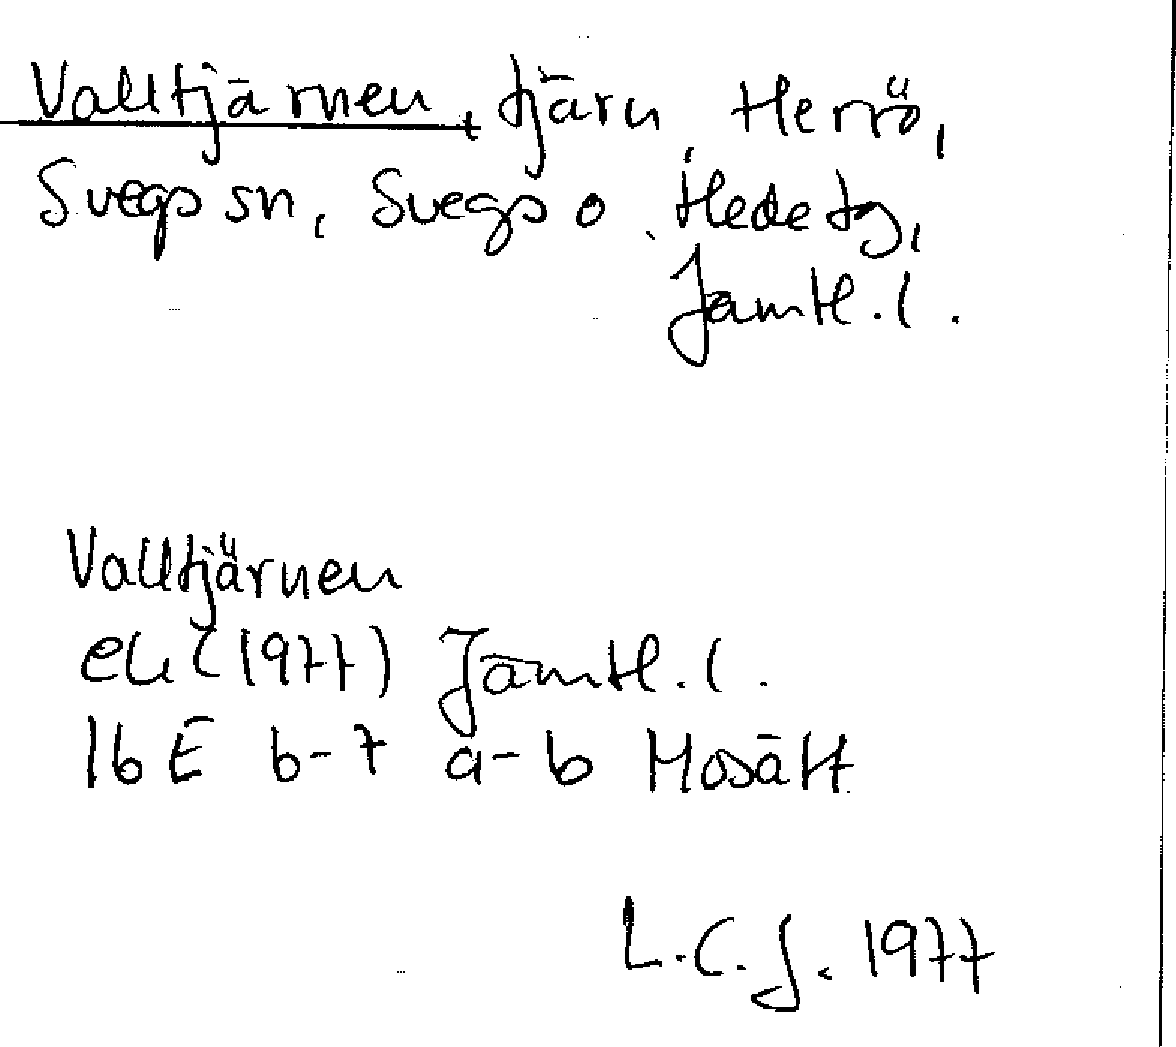 Valltjärnen, tjärn, Herrö,
Svegs sn, Svegs o. Hede tg,
Jämtl. l.
Valltjärnen
ek (1977) Jämtl. l.
16 E b-7 a-b Mosätt
L.C.J. 1977